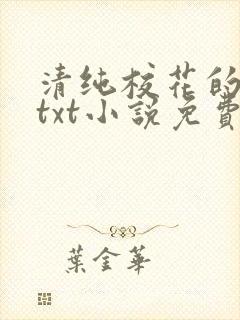 清纯校花的
txt小說免費
葉金華